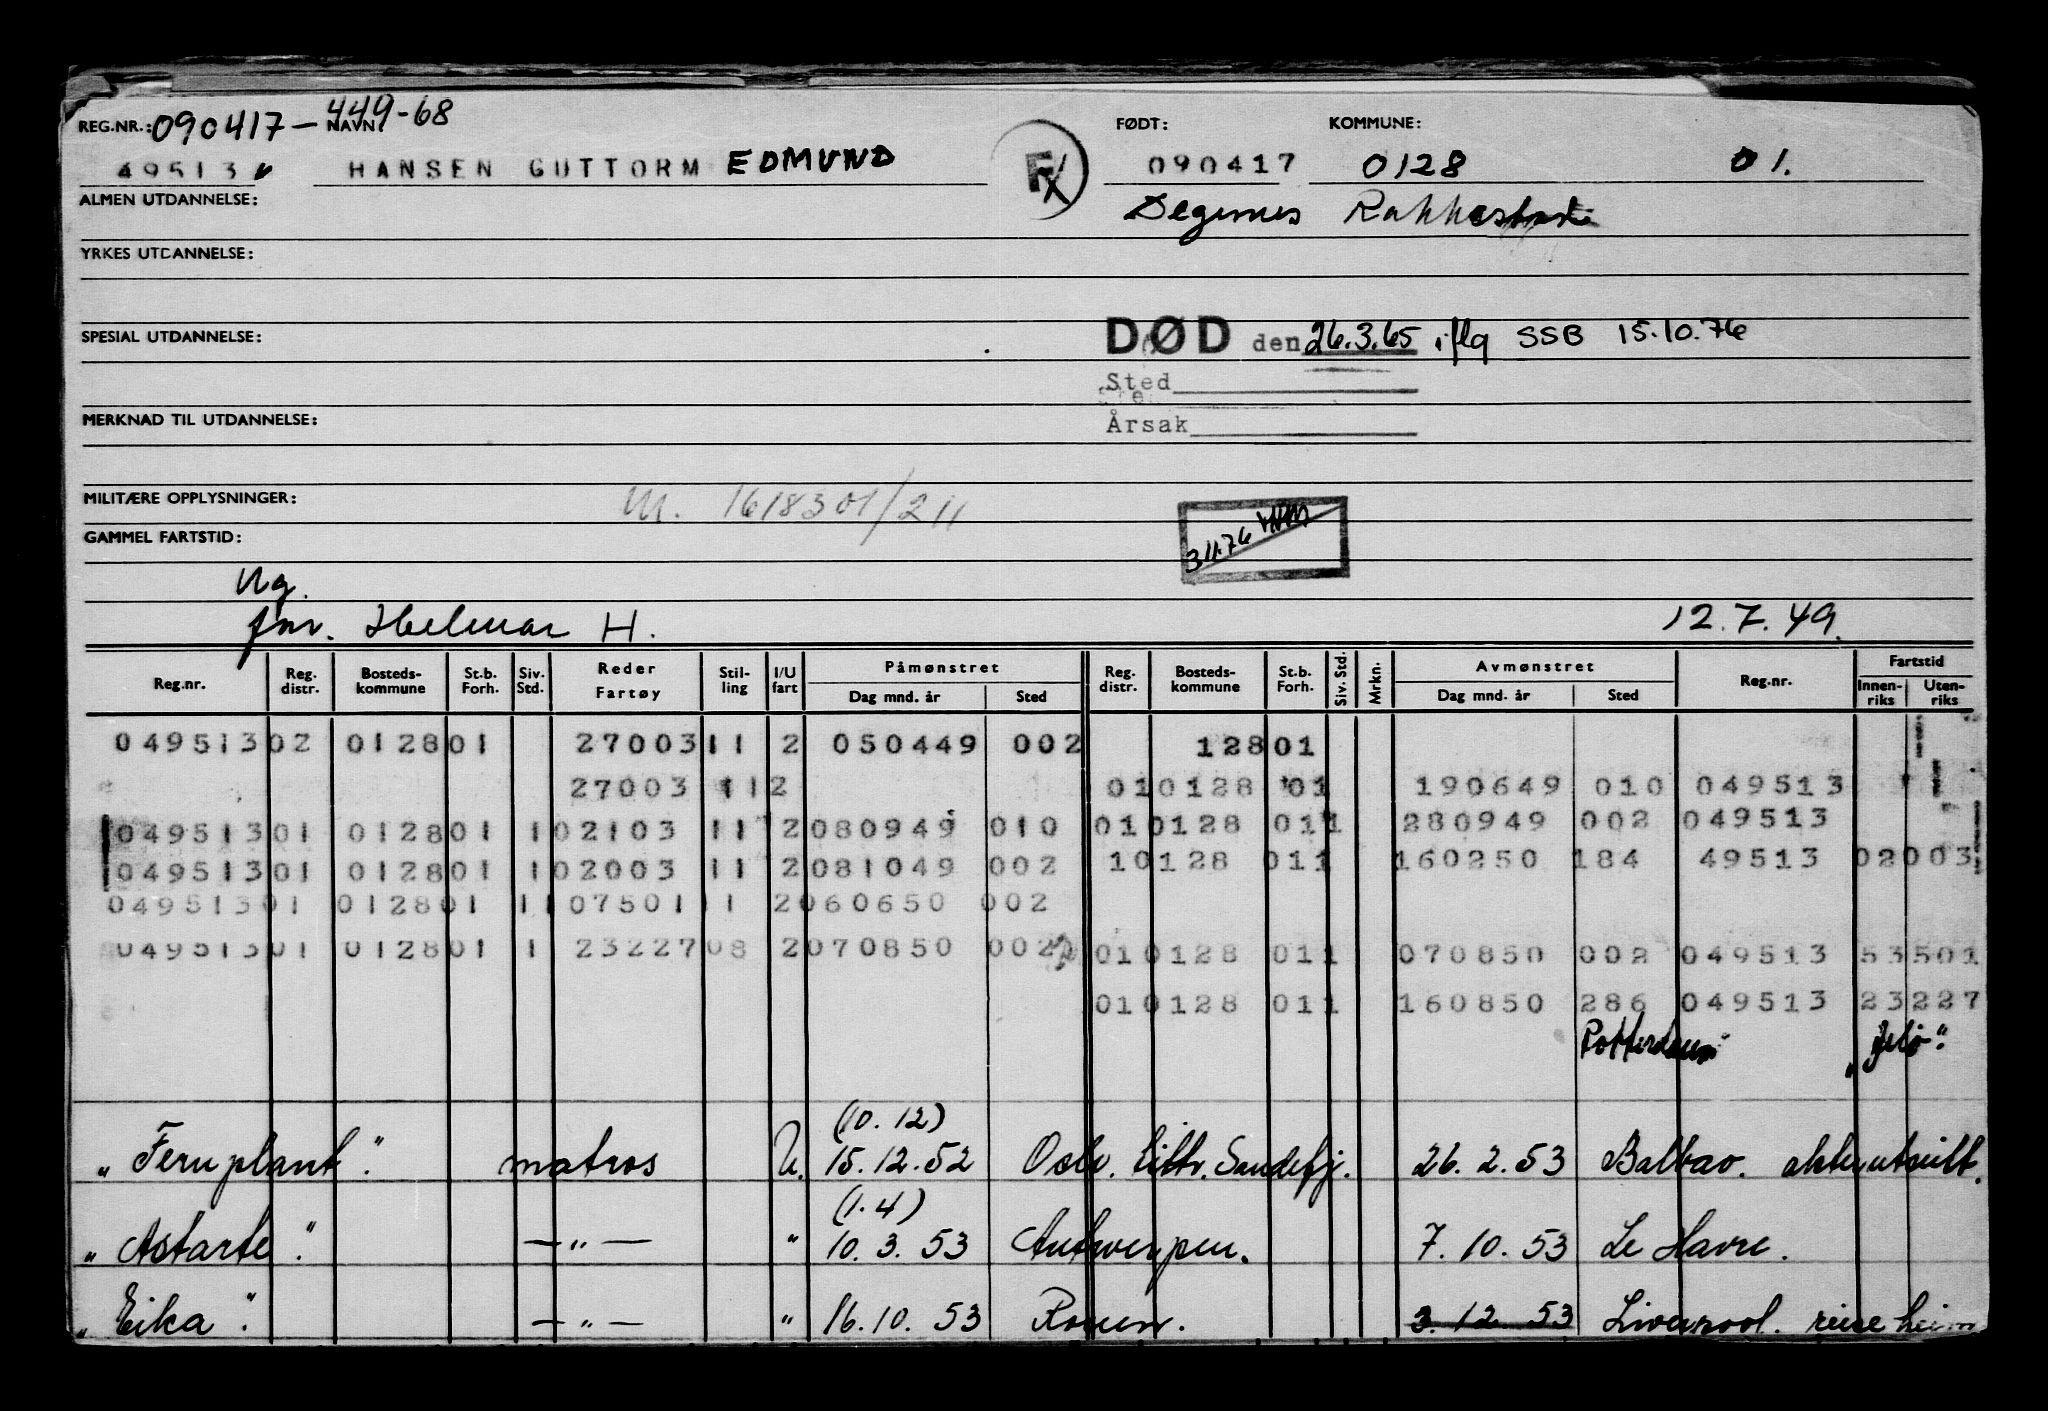 REG.NR.: 090417-449-68 NAVN: FØDT: KOMMUNE:
49513 HANSEN GUTTORM EDMUND 090417 0128 01.
ALMEN UTDANNELSE: Degernes Rakkestad
YRKES UTDANNELSE:
SPESIAL UTDANNELSE: DØD den 26.3.65 iflg SSB 15.10.76
Sted
MERKNAD TIL UTDANNELSE: Årsak
MILITÆRE OPPLYSNINGER: M. 1618301/211
GAMMEL FARTSTID: 3/11.76
Ug.
for. Helmar H. 12.7.49.
Reg.nr. Reg. distr. Bosteds-kommune St.b. Forh. Siv. Std. Reder Fartøy Stil-ling I/U fart Påmønstret Dag mnd. år Sted Reg. distr. Bosteds-kommune St.b. Forh. Siv. Std. Mrkn. Avmønstret Dag mnd. år Sted Reg.nr. Fartstid Innen-riks Uten-riks
049513 02 0128 01 27003 11 2 050449 002 128 01
27003 11 2 01 0128 01 190649 010 049513
049513 01 0128 01 1 02103 11 2 080949 010 01 0128 01 1 280949 002 049513
049513 01 0128 01 1 02003 11 2 081049 002 1 0128 01 1 160250 184 49513 02 003
049513 01 0128 01 1 107501 11 2 060650 002
049513 01 0128 01 1 23227 08 2 070850 002 01 0128 01 1 070850 002 049513 53 501
01 0128 01 1 160850 286 049513 23 227
Rotterdam "Jelø".
(10.12)
"Fernplant". matros U. 15.12.52 Oslo. Eittr. Sandefj. 26.2.53 Balbao. akterutseilt.
(1.4)
"Astarte". —"— " 10.3.53 Antwerpen. 7.10.53 Le Havre.
"Eika". —"— " 16.10.53 Rouen. 3.12.53 Liverpool. reise heim